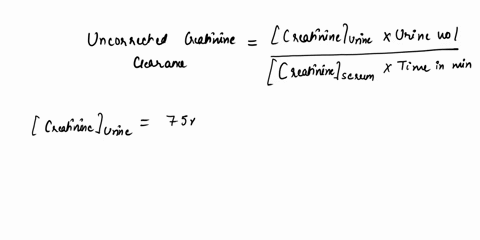 Uncorrected Creatinine Clearance = [Creatinine]urine x Urine vol
[Creatinine]serum x Time in min
[Creatinine]urine = 75x